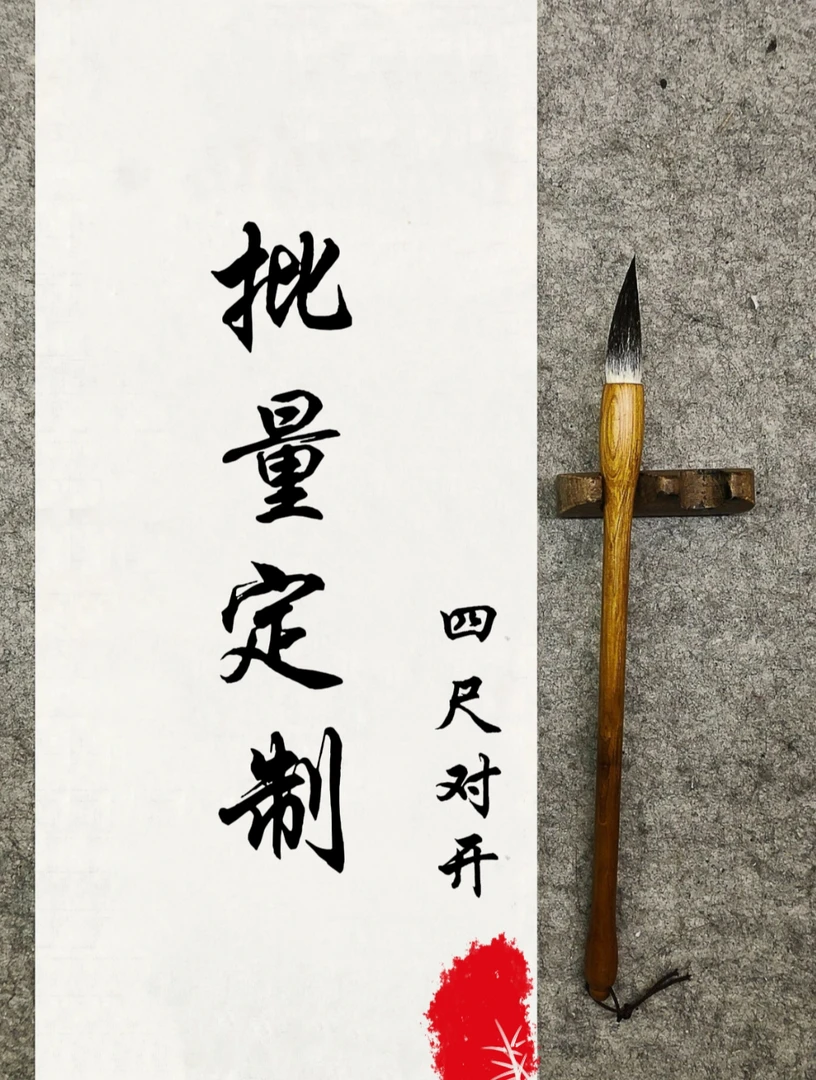 批量定制
四尺对开